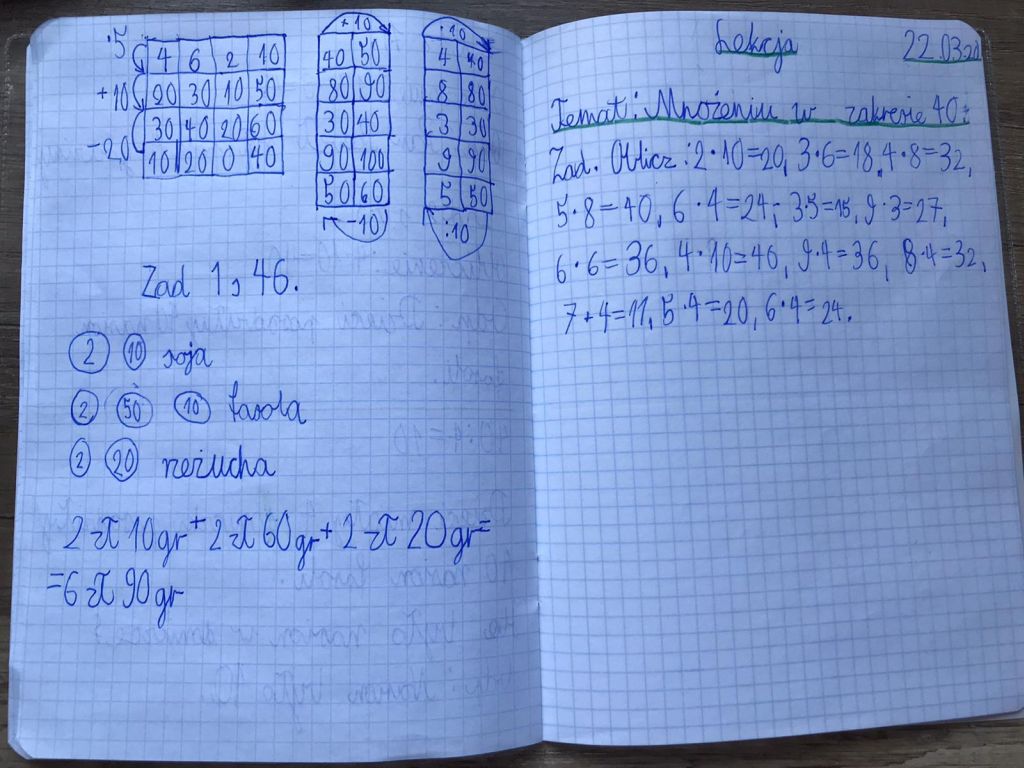 ·5 4 6 2 10
+10 20 30 10 50
30 40 20 60
-20 10 20 0 40
+10
40 50
80 90
30 40
90 100
50 60
-10
·10
4 40
8 80
3 30
9 90
5 50
:10
Zad 1, 46.
2 10 soja
2 50 10 fasola
2 20 rzeżucha
2 zł 10gr + 2 zł 60gr + 2 zł 20gr =
= 6 zł 90gr
Lekcja 22.03.20
Temat: Mnożeniu w zakresie 40:
Zad. Oblicz: 2·10=20, 3·6=18, 4·8=32,
5·8=40, 6·4=24; 3·5=15, 9·3=27,
6·6=36, 4·10=40, 9·4=36, 8·4=32,
7+4=11, 5·4=20, 6·4=24.